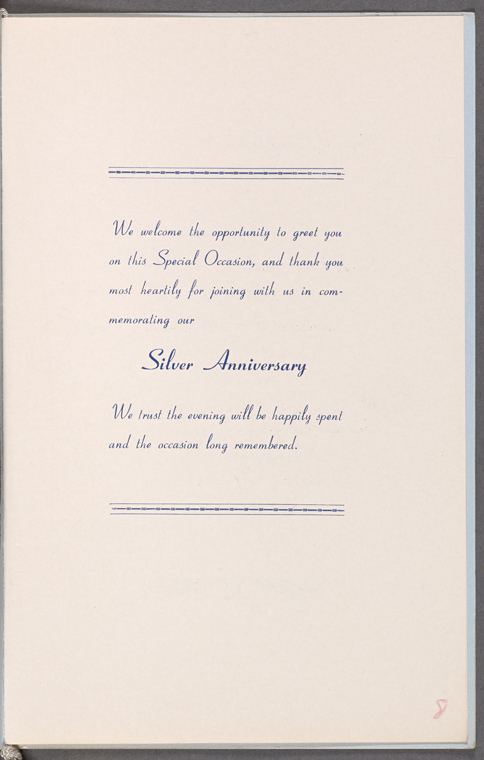 We welcome the opportunity to greet you
on this Special Occasion, and thank you
most heartily for joining with us in com-
memorating our
Silver Anniversary
We trust the evening will be happily spent
and the occasion long remembered.
8